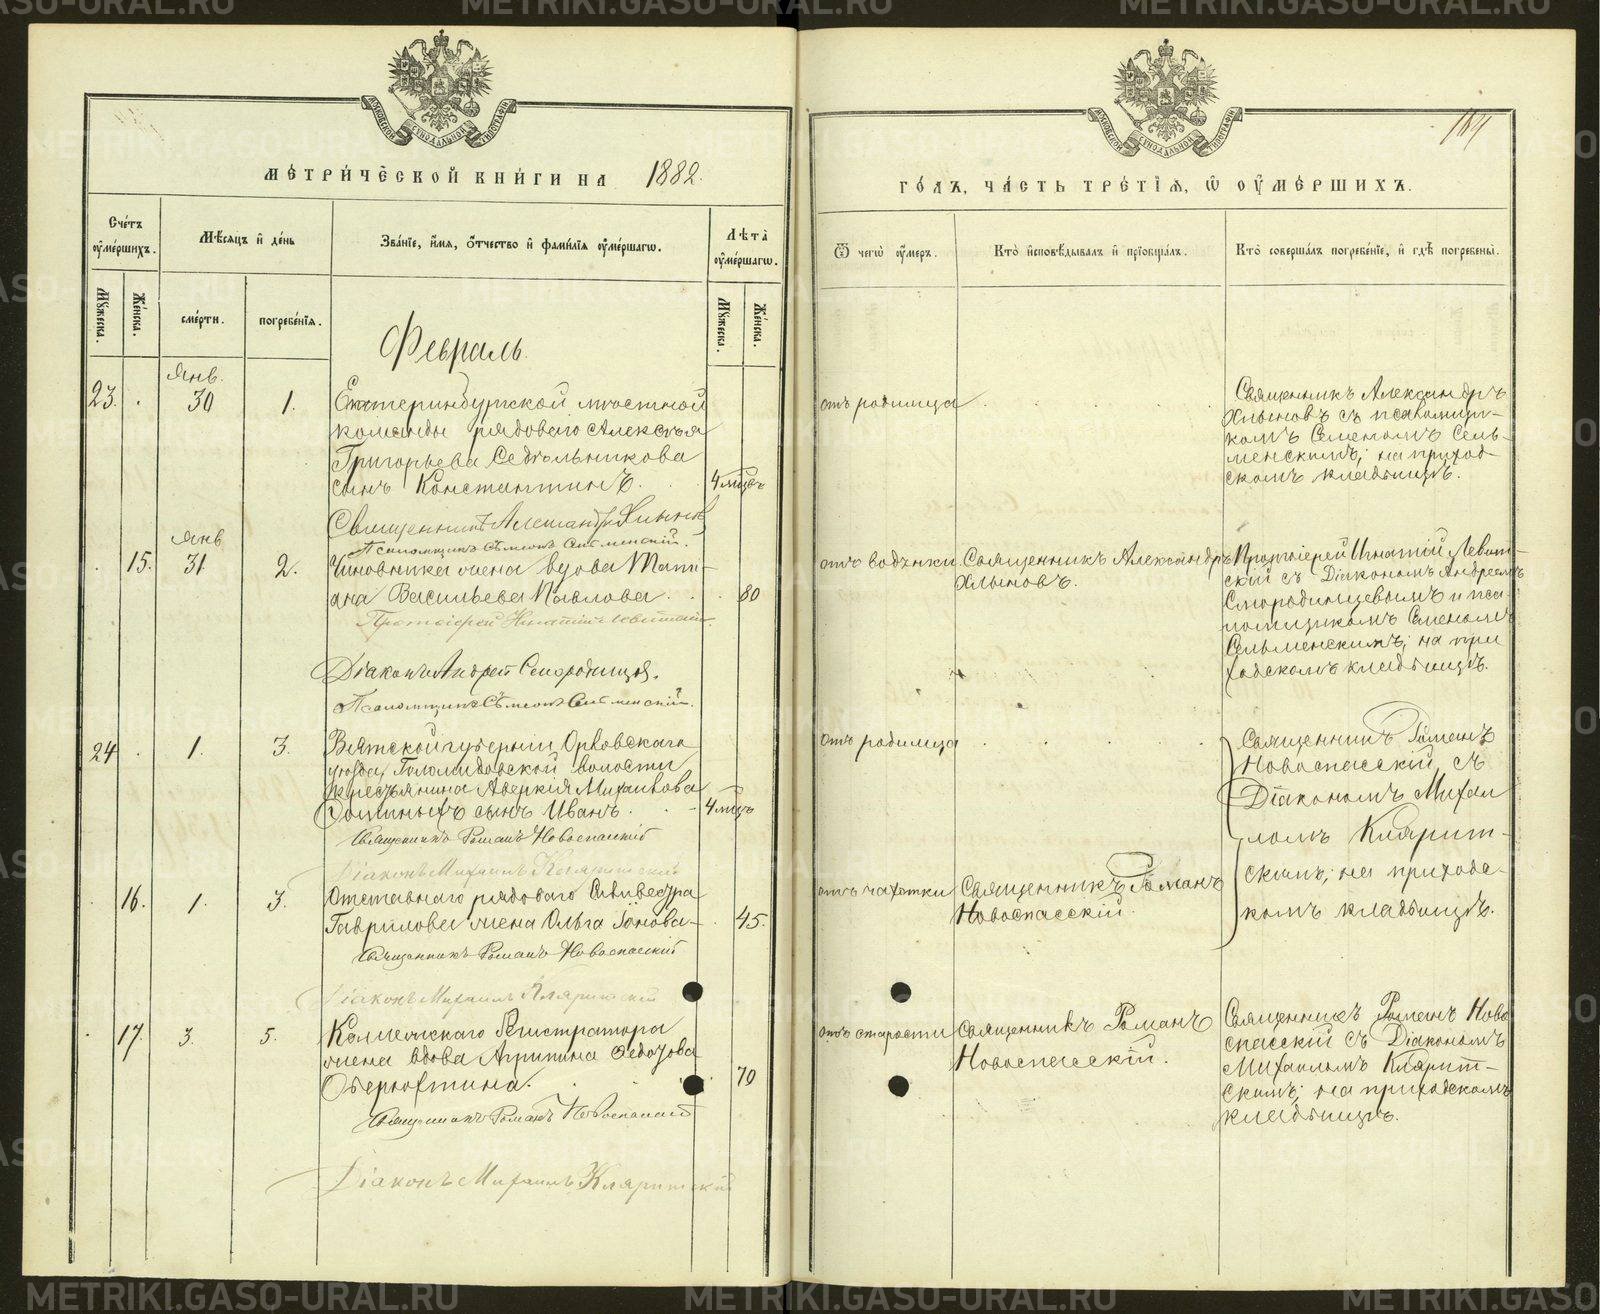 МЕТРИЧЕСКОЙ КНИГИ НА 1882.
Счетъ умершихъ.
Мѣсяцъ и день
Званіе, имя, отчество и фамилія умершаго.
Лѣта умершаго.
Мужеска.
Женска.
смерти.
погребенія.
Мужеска.
Женска.
Февраль.
Янв.
23. 30 1.
Екатеринбургской мѣстной
команды рядового Алексѣя
Григорьева Седѣльникова
сынъ Константинъ. 4 мцвъ
Священникъ Александръ Хлыновъ
Псаломщикъ Сѵмеонъ Сельменскій.
Янв
15. 31 2.
Чиновника жена вдова Тати-
ана Васильева Павлова. 80
Протоіерей Игнатій Левитскій
Діаконъ Андрей Смородинцев.
Псаломщикъ Сѵмеонъ Сельменскій.
24 1. 3.
Вятской губерніи, Орловскаго
уѣзда, волости
крестьянина Аверкія Михайлова
сынъ Иванъ. 4 мцъ
Священникъ Романъ Новоспасскій
Діаконъ Михаилъ Кляритскій
16. 1. 3.
Отставнаго рядоваго Сильвестра
Гаврилова жена Ольга Іонова 45.
Священникъ Романъ Новоспасскій
Діаконъ Михаилъ Кляритскій
17. 3. 5.
Коллежскаго Регистратора
жена вдова Агрипина Ѳедотова
Оберюхтина. 70
Священникъ Романъ Новоспасскій
Діаконъ Михаилъ Кляритскій
164
ГОДЪ, ЧАСТЬ ТРЕТІЯ, Ѡ УМЕРШИХЪ.
Ѿ чегѡ умеръ.
Кто исповѣдывалъ и пріобщалъ.
Кто совершалъ погребеніе, и гдѣ погребены.
отъ родимца
Священникъ Александръ
Хлыновъ съ псаломщи-
комъ Семеномъ Сель-
менскимъ; на приход-
скомъ кладбищѣ.
отъ водянки
Священникъ Александръ
Хлыновъ.
Протоіерей Игнатій Левит-
скій съ Діакономъ Андреемъ
Смородинцевымъ и пса-
ломщикомъ Семеномъ
Сельменскимъ; на при
ходскомъ кладбищѣ.
отъ родимца
Священникъ Романъ
Новоспасскій съ
Діакономъ Михаи
ломъ Клярит-
скимъ; на приходс-
комъ кладбищѣ.
отъ чахотки
Священникъ Романъ
Новоспасскій.
отъ старости
Священникъ Романъ
Новоспасскій.
Священникъ Романъ Ново
спасскій съ Діакономъ
Михаиломъ Клярит-
скимъ; на приходскомъ
кладбищѣ.
METRIKI.GASO-URAL.RU